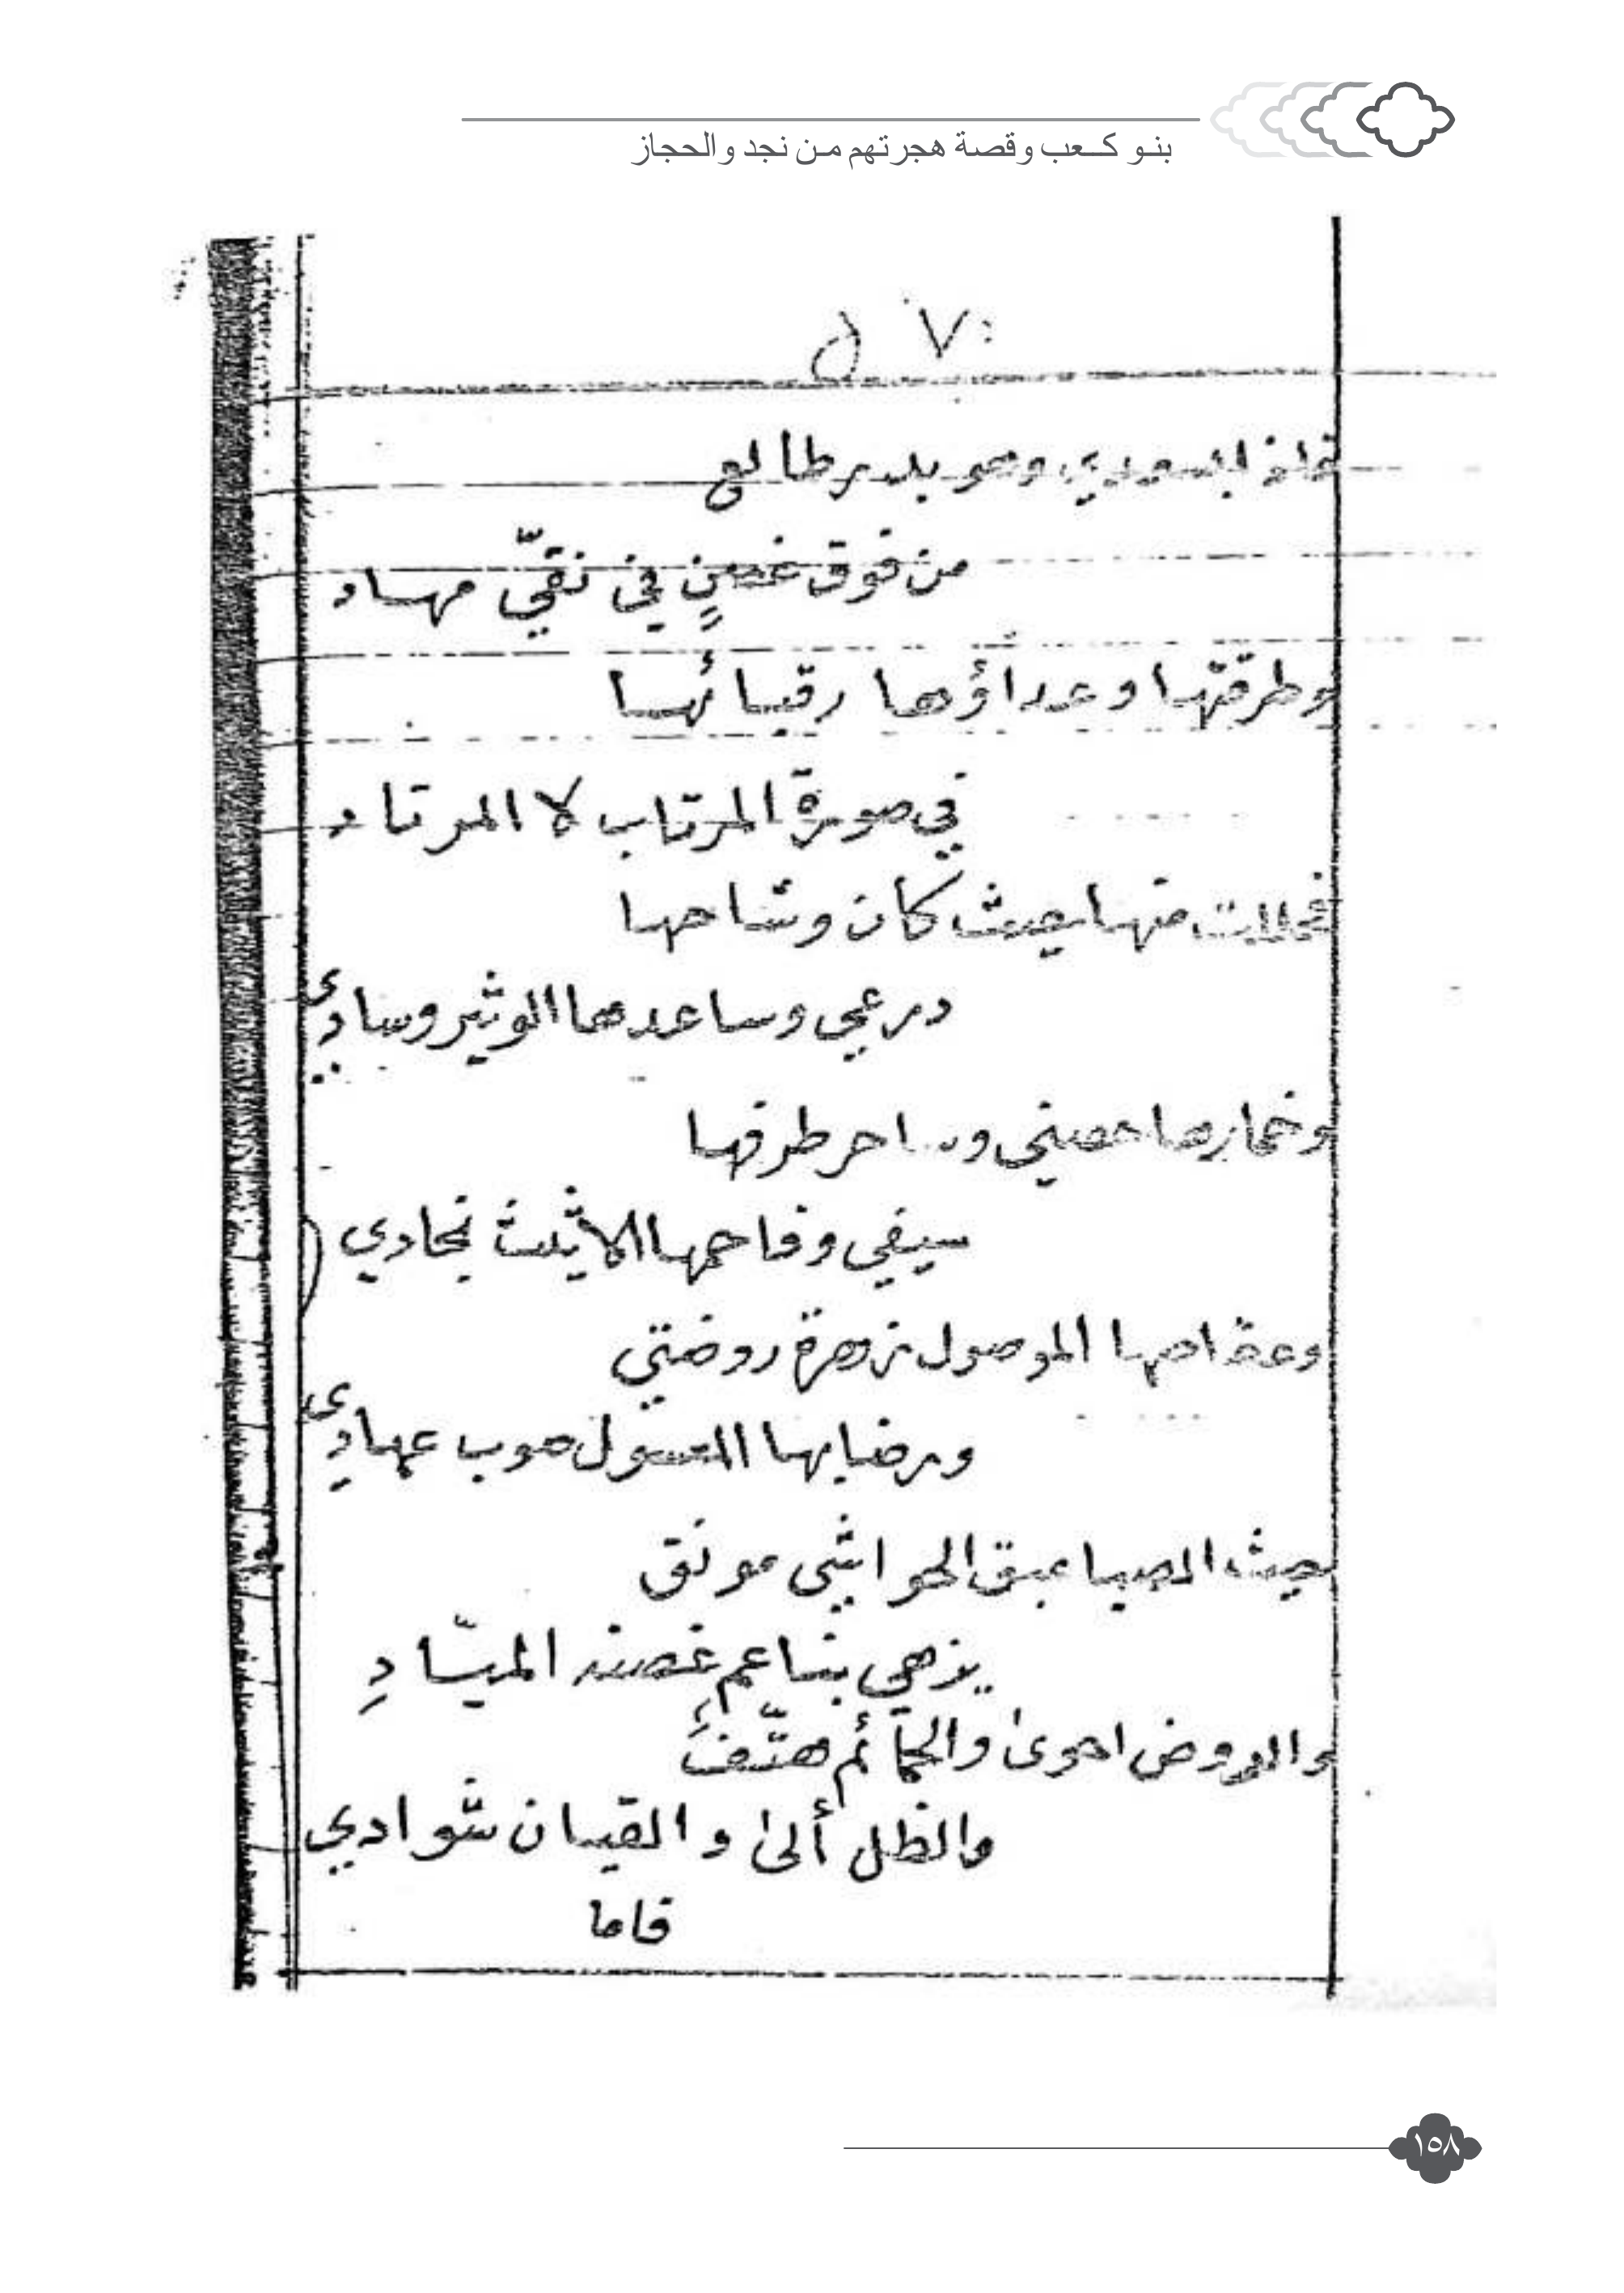 بنو كعب وقصة هجرتهم من نجد والحجاز
٧٠
وهو بدر طالع
من فوق غصنٍ في نقيّ مهاد
وطرقتها وعداؤها رقبائها
في صورة المرتاب لا المرتاد
منها بحيث كان وشاحها
درعي وساعدها الوثير وسادي
وخمارها حصني وساحر طرفها
سيفي وفاحمها الاثيث نجادي
وعقاصها الموصول زهرة روضتي
ورضابها المعسول صوب عهادي
بحيث الصبا عبق الحواشي مونق
يزهي بناعم غصنه الميّادِ
والروض احوى والحمائم هتّف
والظل ألمى والقيان شوادي
فاما
١٥٨